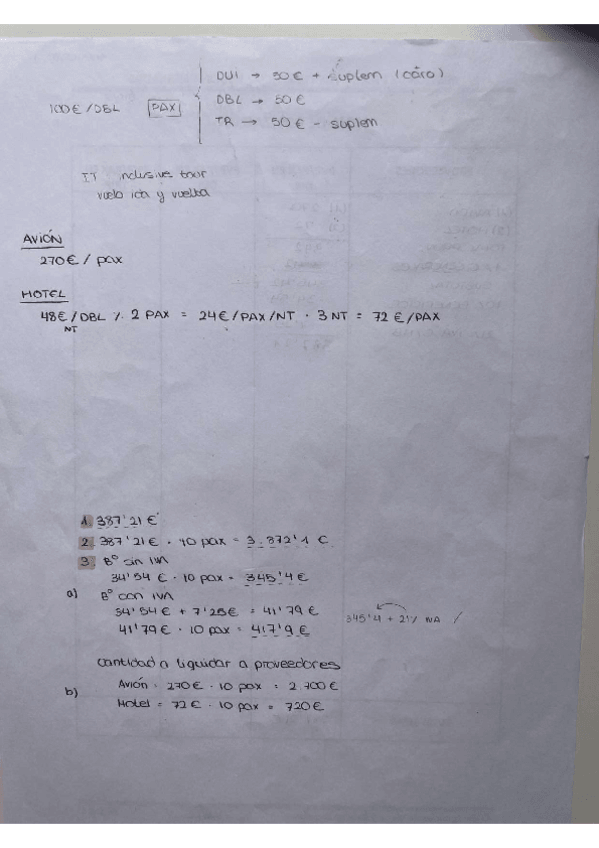 DUI → 50€ + suplem (caro)
100€/DBL PAX DBL → 50€
TR → 50€ - suplem
IT inclusive tour
vuelo ida y vuelta
AVIÓN
270€ / pax
HOTEL
48€/DBL ÷ 2 PAX = 24€/PAX/NT · 3 NT = 72 €/PAX
NT
1. 387'21 €
2. 387'21€ · 10 pax = 3.872'1 €
3. Bº sin IVA
34'54 € · 10 pax = 345'4€
a) Bº con IVA
34'54€ + 7'25€ = 41'79 €
41'79€ · 10 pax = 417'9€
345'4 + 21% IVA /
cantidad a liquidar a proveedores
b) Avión = 270€ · 10 pax = 2 700€
Hotel = 72€ · 10 pax = 720€